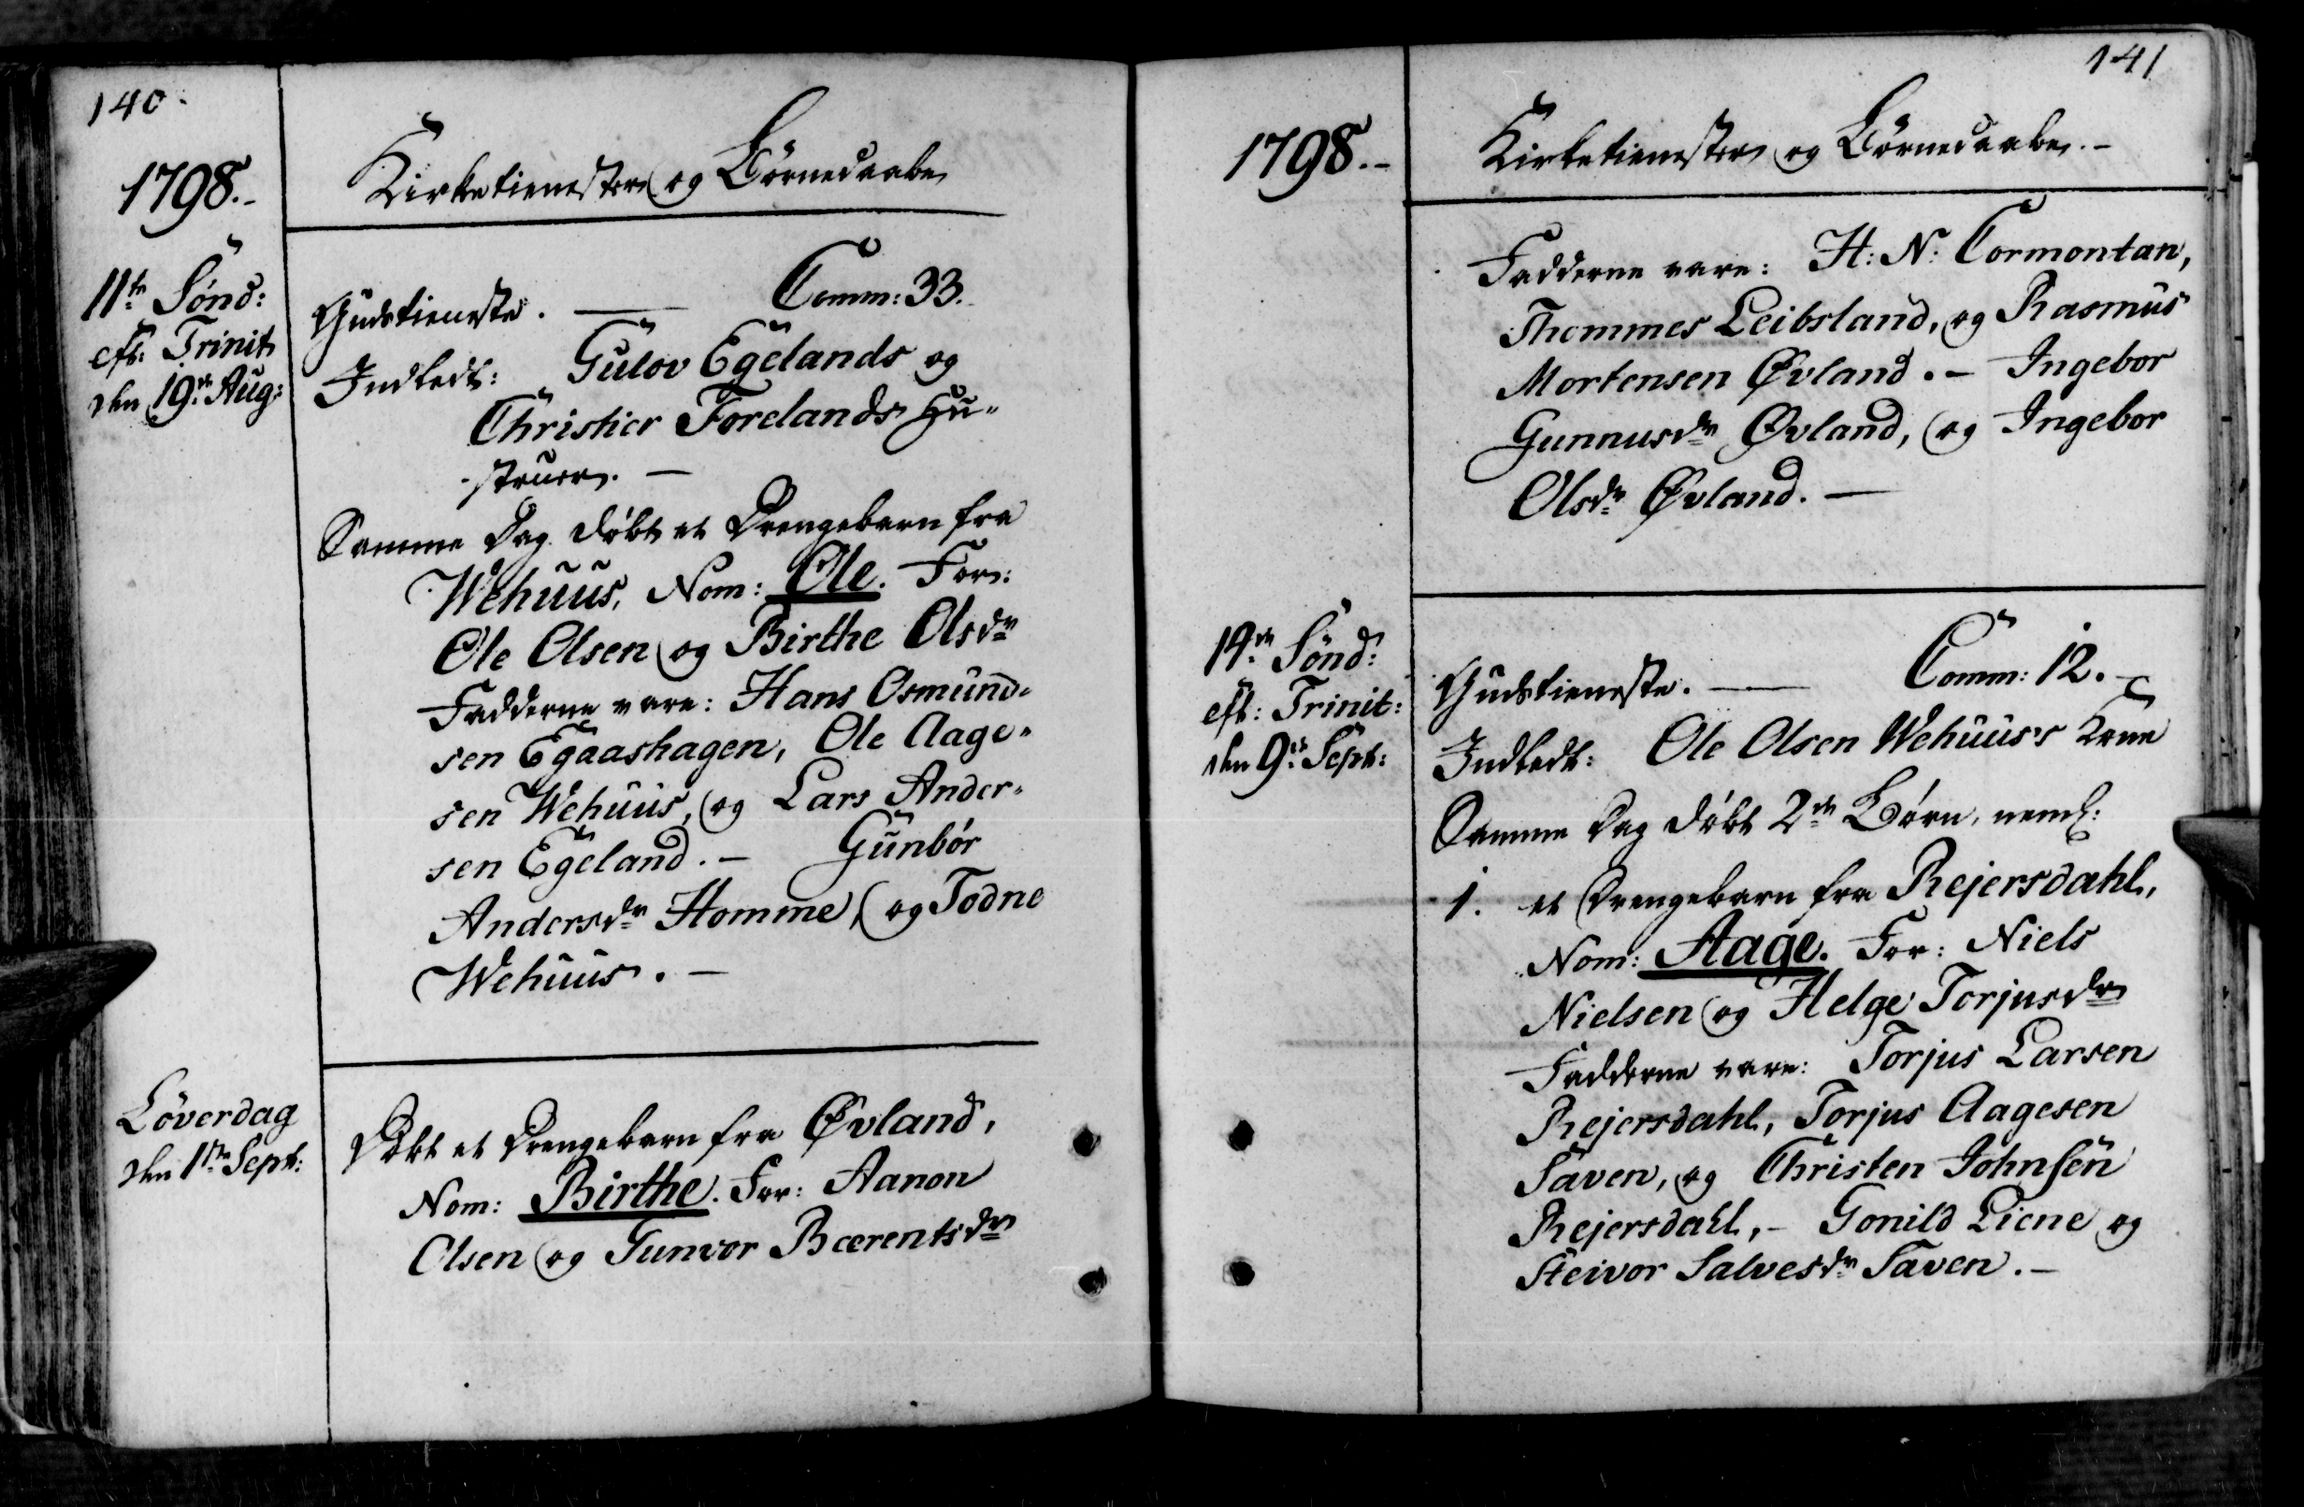 140.
1798.-
Kirketienester og Börnedaabe
11te Sönd:
eft: Trinit
den 19de Aug:
Gudstieneste. — Comm: 33.
Indledt: Gulov Egelands og
Christier Forelands Hu-
struer. —
Samme Dag döbt et Drengebarn fra
Wehuus, Nom: Ole. For:
Ole Olsen og Birthe Olsdr
Fadderne vare: Hans Osmund-
sen Egaashagen, Ole Aage-
sen Wehuus, og Lars Ander-
sen Egeland. - Gunbör
Andersdr Homme, og Todne
Wehuus. -
Löverdag
den 1ste Sept:
Döbt et Drengebarn fra Øvland,
Nom: Birthe. For: Aanon
Olsen og Gunvor Bærentsdr
141
1798.-
Kirketienester og Börnedaabe.-
Fadderne vare: H: N: Cormontan,
Thommes Leibsland, og Rasmus
Mortensen Øvland. - Ingebor
Gunnusdr Øvland, og Ingebor
Olsdr Øvland. —
14de Sönd:
eft: Trinit:
den 9de Sept:
Gudstieneste. — Comm: 12. -
Indledt: Ole Olsen Wehuus's Kone
Samme Dag döbt 2de Börn, neml:
1. et Drengebarn fra Rejersdahl,
Nom: Aage. For: Niels
Nielsen og Helge Torjusdr
Fadderne vare: Torjus Larsen
Rejersdahl, Torjus Aagesen
Saven, og Christen Johnsen
Rejersdahl, - Gonild Liene og
Steivor Salvesdr Saven. -